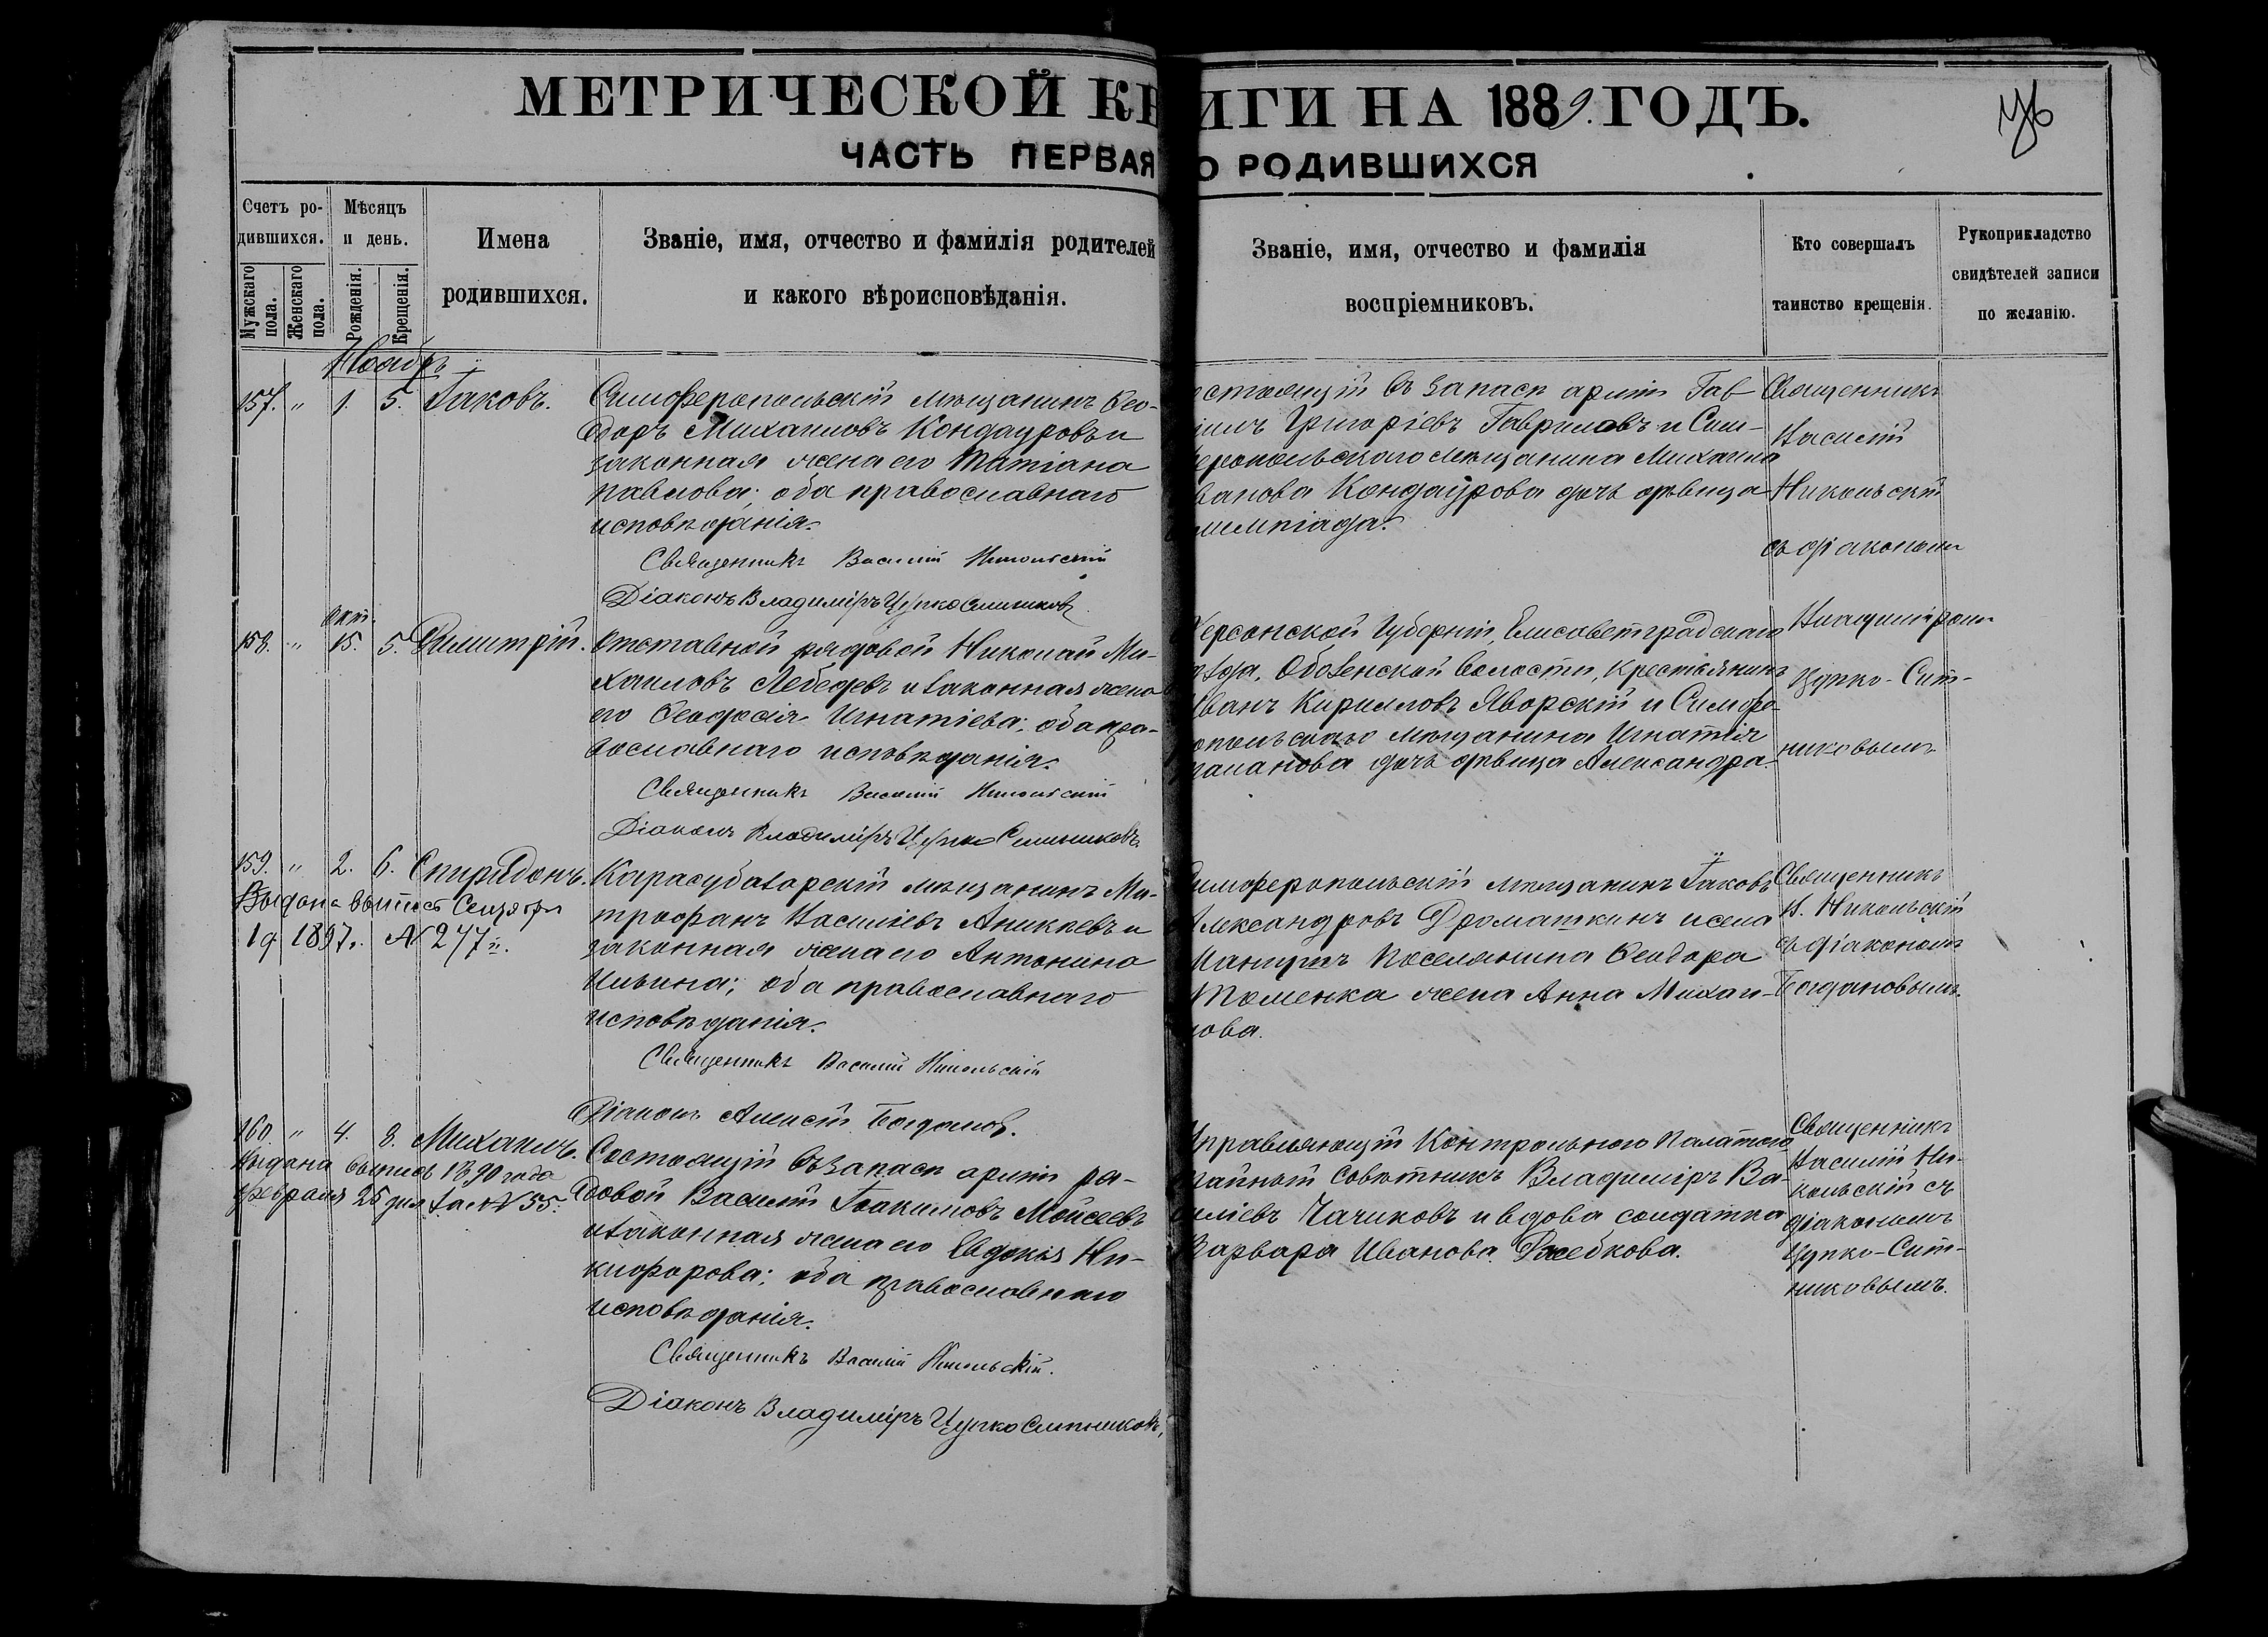 МЕТРИЧЕСКОЙ КН
ИГИ НА 1889. ГОДЪ.
ЧАСТЬ ПЕРВАЯ
О РОДИВШИХСЯ
Счетъ ро-
дившихся.
Мужскаго пола.
Женскаго пола.
Мѣсяцъ
и день.
Рожденія.
Крещенія.
Имена
родившихся.
Званіе, имя, отчество и фамилія родителей
и какого вѣроисповѣданія.
Званіе, имя, отчество и фамилія
воспріемниковъ.
Кто совершалъ
таинство крещенія.
Рукоприкладство
свидѣтелей записи
по желанію.
Ноябрь
157. " 1. 5. Іаковъ.
Симферопольскій мѣщанинъ Ѳео-
доръ Михаиловъ Кондауровъ и
законная жена его Татіана
Павлова; оба православнаго
исповѣданія.
Священникъ Василій Никольскій
Діаконъ Владиміръ Цупко Ситниковъ
стоящій въ запасѣ арміи Гав-
іилъ Григоріевъ Гавриловъ и Сим-
феропольскаго мѣщанина Михаила
ванова Кондаурова дочь дѣвица
лимпіада.
Священникъ
Василій
Никольскій
съ діакономъ
Владиміромъ
Цупко-Сит-
никовымъ
Окт.
158. " 15. 5. Димитрій.
Отставной рядовой Николай Ми-
хаиловъ Лебедевъ и законная жена
его Ѳеодосія Игнатіева; оба пра-
вославнаго исповѣданія.
Священникъ Василій Никольскій
Діаконъ Владиміръ Цупко Ситниковъ
Херсонской Губерніи, Елисаветградскаго
ѣзда, волости, крестьянинъ
Иванъ Кирилловъ Яворскій и Симфе-
ропольскаго мѣщанина Игнатія
дочь дѣвица Александра.
159. " 2. 6. Спиридонъ.
Выдана выпись Сентября
1 д 1897 г. № 247й.
Карасубазарскій мѣщанинъ Ми-
трофанъ Василіевъ Аникѣевъ и
законная жена его Антонина
Ильина; оба православнаго
исповѣданія.
Священникъ Василій Никольскій
Діаконъ Алексій Богдановъ.
Симферопольскій мѣщанинъ Іаковъ
Александровъ Дроматкинъ и
поселянина Ѳеодора
Томенка жена Анна Михаи-
лова.
Священникъ
В. Никольскій
съ діакономъ
Богдановымъ.
160. " 4. 8. Михаилъ.
Выдана выпись 1890 года
февраля 25 дня за № 55.
Состоящій въ запасѣ арміи ря-
довой Василій Іоакимовъ Мойсеевъ
и законная жена его Евдокія Ни-
кифорова; оба православнаго
исповѣданія.
Священникъ Василій Никольскій.
Діаконъ Владиміръ Цупко Ситниковъ,
Управляющій Контрольною Палатою
тайный Совѣтникъ Владиміръ Ва-
силіевъ Чачиковъ и вдова солдатка
Варвара Иванова
Священникъ
Василій Ни-
кольскій съ
діакономъ
Цупко-Сит-
никовымъ.